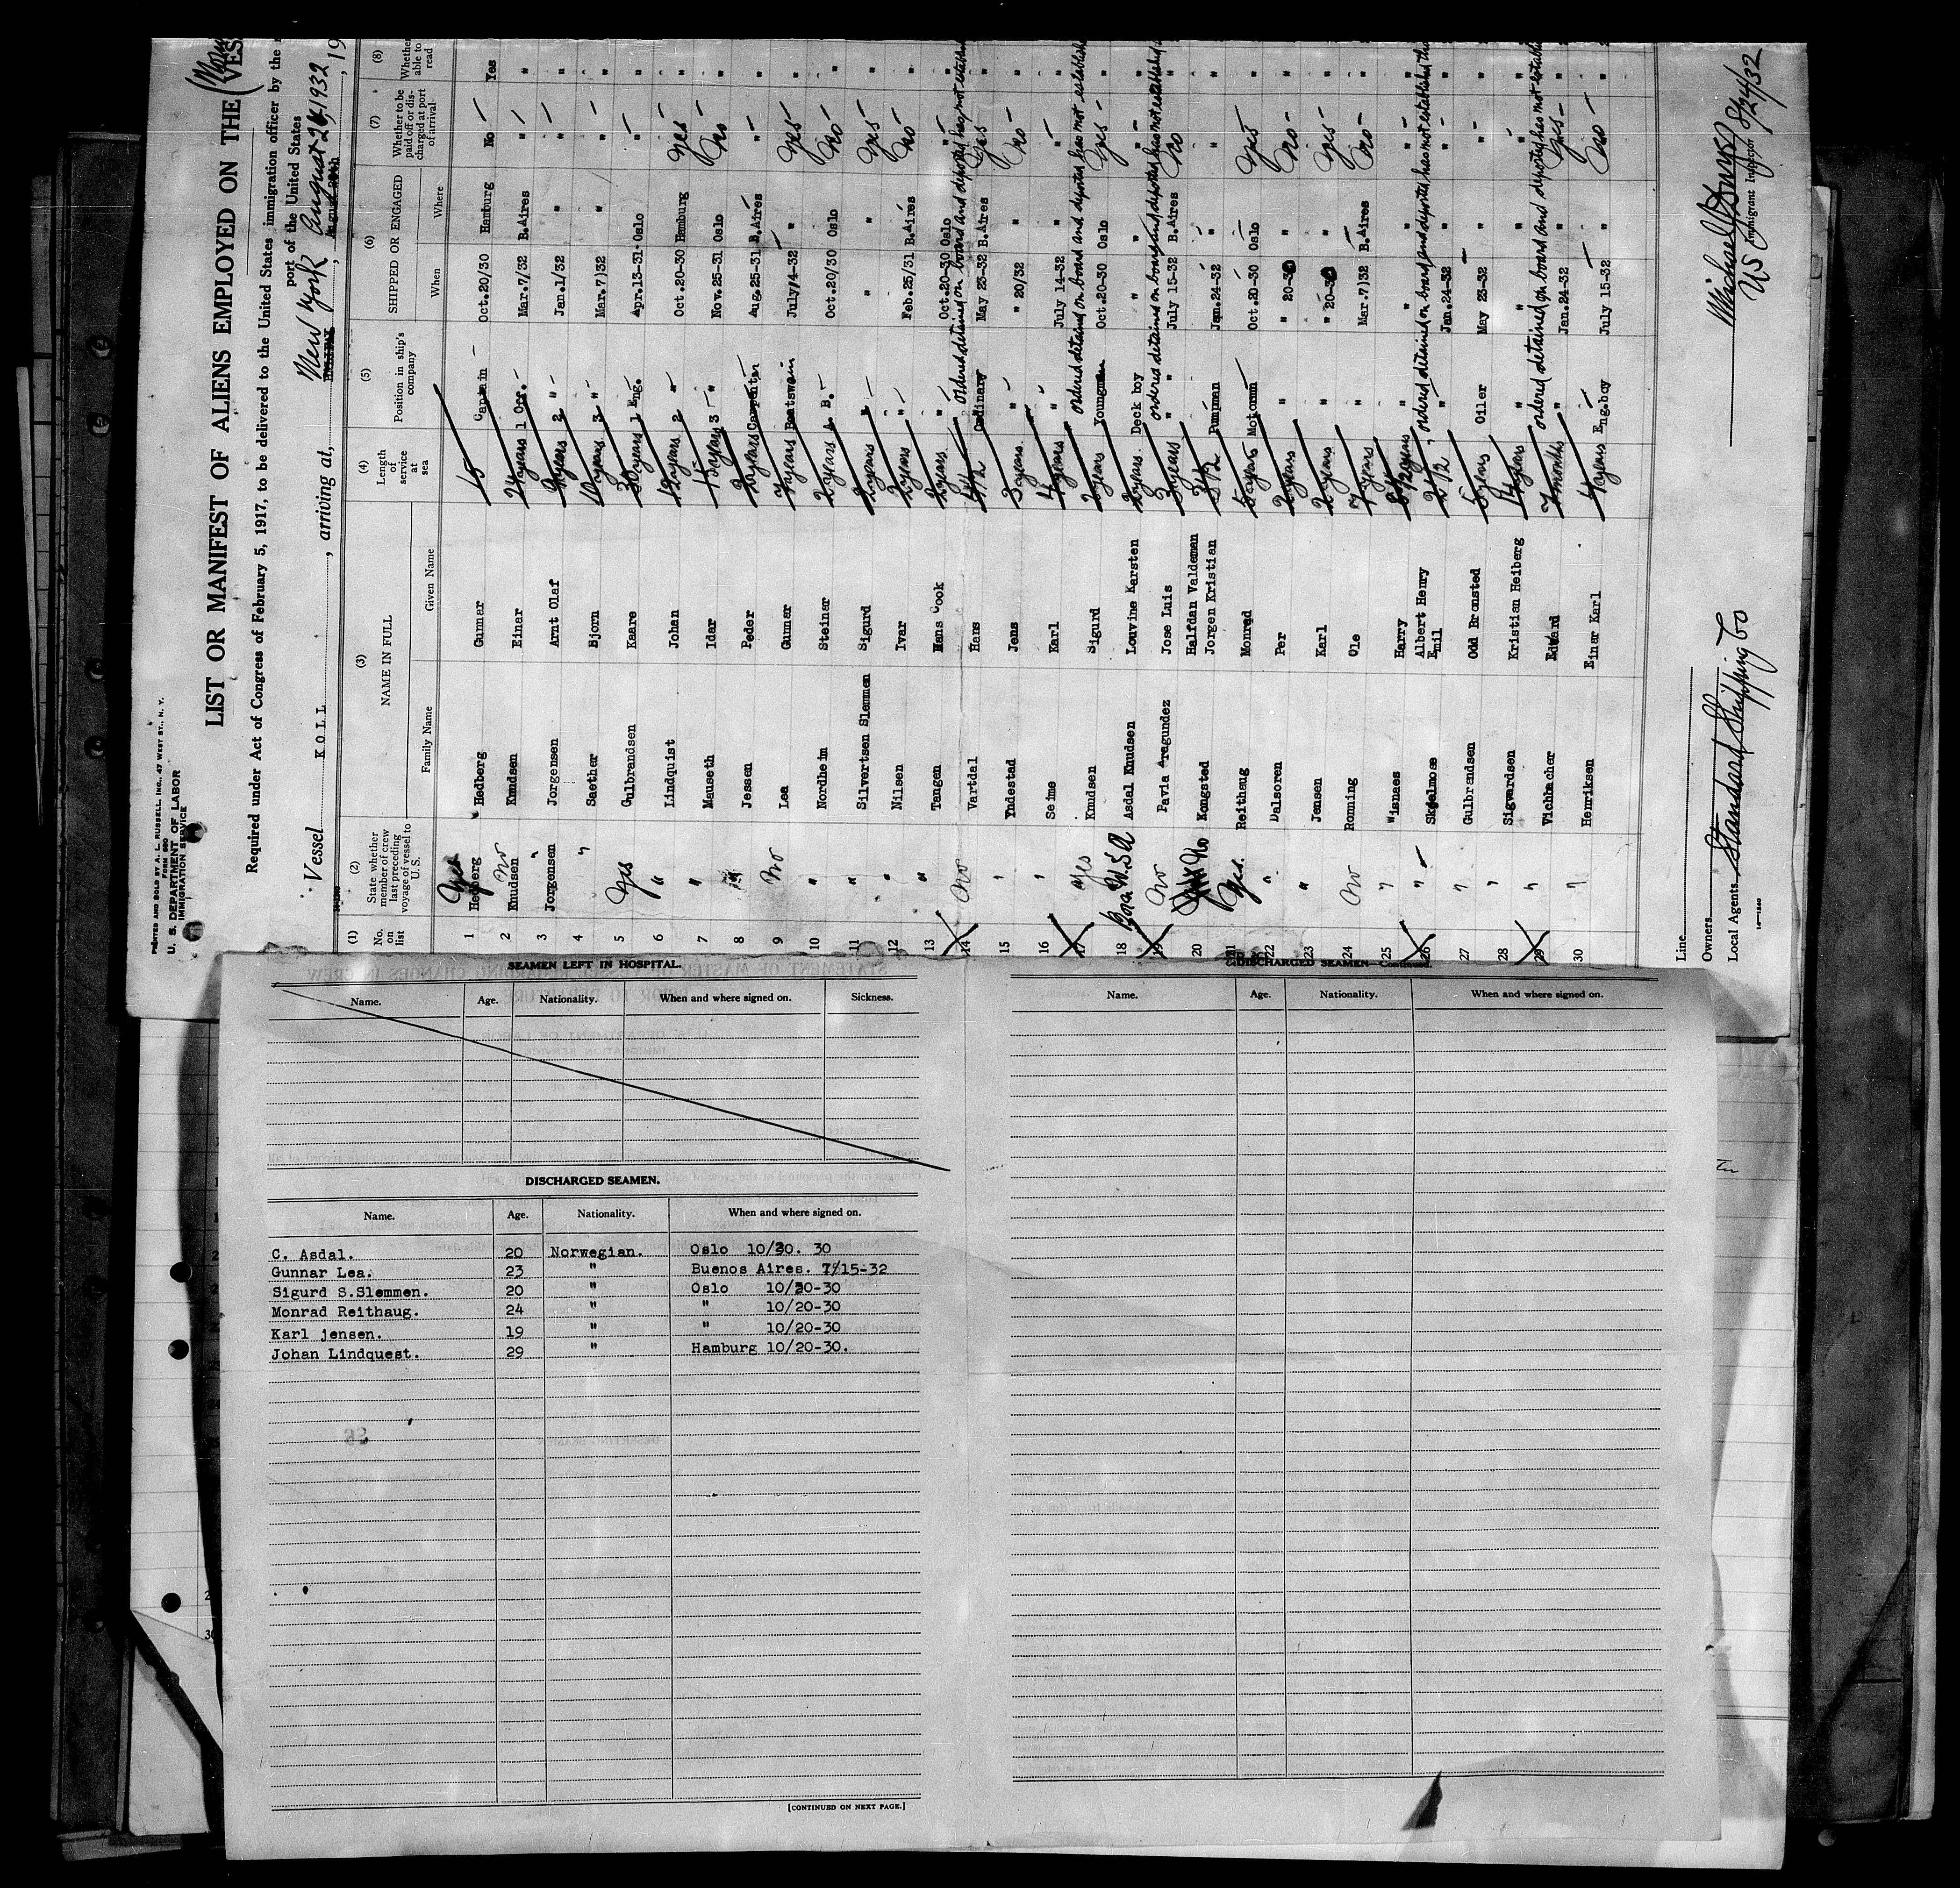 PRINTED AND SOLD BY A. L. RUSSELL, INC., 47 WEST ST., N. Y.
FORM 680
U. S. DEPARTMENT OF LABOR
IMMIGRATION SERVICE
LIST OR MANIFEST OF ALIENS EMPLOYED ON THE VES
Required under Act of Congress of February 5, 1917, to be delivered to the United States immigration officer by the
port of the United States
Vessel KOLL, arriving at, New York August 24, 1932, 19
(1) No. on list
(2) State whether member of crew last preceding voyage of vessel to U. S.
(3) NAME IN FULL Family Name Given Name
(4) Length of service at sea
(5) Position in ship's company
(6) SHIPPED OR ENGAGED When Where
(7) Whether to be paid off or discharged at port of arrival
(8) Whether able to read
1 Yes Hedberg Hedberg Gunnar 15 Captain Oct.20/30 Hamburg No Yes
2 Knudsen No Knudsen Einar 24 years 1 Mar.7/32 B.Aires " "
3 Jorgensen " Jorgensen Arnt Olaf years 2 " Jan.1/32 " " "
4 " Saether Bjorn 10 years 3 " Mar.7/32 " " "
5 Yes Gulbrandsen Kaare 30 years 1 Eng. Apr.13-31 Oslo " "
6 " Lindquist Johan 12 years 2 " Oct.20-30 Hamburg Yes "
7 " Mauseth Idar years 3 " Nov.25-31 Oslo No "
8 " Jessen Peder years Carpenter Aug.25-31 B.Aires " "
9 No Lea Gunnar 7 years Boatswain July/14-32 " Yes "
10 " Nordheim Steinar 2 years A. B. Oct.20/30 Oslo No "
11 " Silvertsen Slemmen Sigurd 2 years " " " Yes "
12 " Nilsen Ivar 2 years " Feb.25/31 B.Aires No "
13 " Tangen Hans Cook 2 years " Oct.20-30 Oslo " "
ordered detained on board and deported has not establish
14 No Vartdal Hans 4 1/2 Ordinary May 23-32 B.Aires Yes "
15 " Yndestad Jens 3 years " " 20/32 " No "
16 " Seime Karl 4 years " July 14-32 " " "
ordered detained on board and deported has not establish
17 Yes Knudsen Sigurd 2 years Youngman Oct.20-30 Oslo Yes "
18 Asdal Knudsen Louvine Karsten 2 years Deck boy " " " "
ordered detained on board and deported has not established
19 No Pavia Aragundez Jose Luis 3 years " " July 15-32 B.Aires No "
20 No Kongsted Halfdan Valdeman Jorgen Kristian 3 1/2 Pumpman Jan.24-32 " " "
21 Yes. Reithaug Monrad 5 years Motorman Oct.20-30 Oslo Yes "
22 " Dalsoren Per 2 years " " 20-30 " No "
23 " Jensen Karl 2 years " " 20-30 " Yes "
24 No Ronning Ole 7 years " Mar.7/32 B.Aires No "
25 " Wisnaes Harry years " " " "
ordered detained on board and deported has not established
26 " Skjelmose Albert Henry Emil 2 1/2 " Jan.24-32 " " "
27 " Gulbrandsen Odd Bronsted 5 years Oiler May 23-32 " " "
28 " Sigvardsen Kristian Heiberg 14 years " " " " "
ordered detained on board and deported has not establish
29 " Viehbacher Edward 7 months " Jan.24-32 " Yes "
30 " Henriksen Einar Karl 4 years Eng.boy July 15-32 " No "
Line
Owners
Local Agents Standard Shipping Co
Michael
US Immigrant Inspector 8/24/32
SEAMEN LEFT IN HOSPITAL.
Name. Age. Nationality. When and where signed on. Sickness.
DISCHARGED SEAMEN.
Name. Age. Nationality. When and where signed on.
C. Asdal. 20 Norwegian. Oslo 10/20. 30
Gunnar Lea. 23 " Buenos Aires. 7/15-32
Sigurd S.Slemmen. 20 " Oslo 10/20-30
Monrad Reithaug. 24 " " 10/20-30
Karl jensen. 19 " " 10/20-30
Johan Lindquest. 29 " Hamburg 10/20-30.
[CONTINUED ON NEXT PAGE.]
DISCHARGED SEAMEN—Continued.
Name. Age. Nationality. When and where signed on.